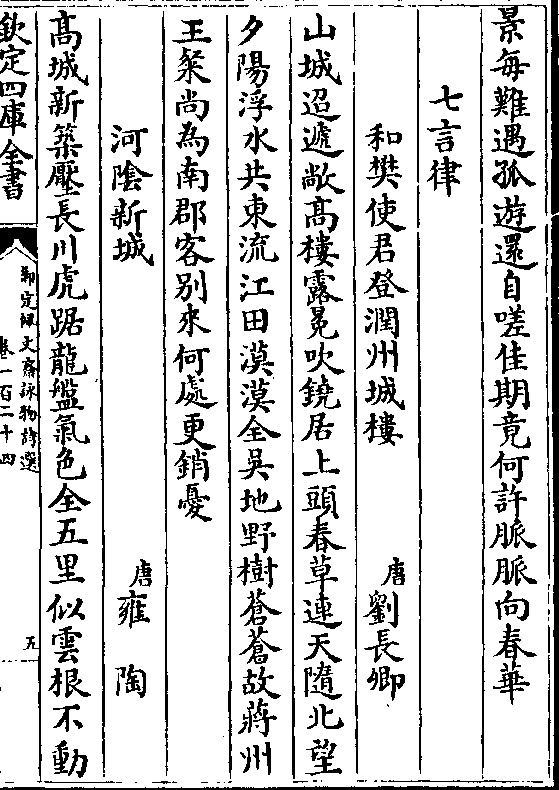 景每難遇孤遊還自嗟佳期竟何許脈脈向春華
七言律
和樊使君登潤州城樓　唐劉長卿
山城迢遞敞高樓露冕吹鐃居上頭春草連天隨北望
夕陽浮水共東流江田漠漠全吳地野樹蒼蒼故蔣州
王粲尚為南郡客別來何處更銷憂
河陰新城　唐雍陶
高城新築壓長川虎踞龍盤氣色全五里似雲根不動
欽定四庫全書
御定佩文齋詠物詩選
卷一百二十四
五